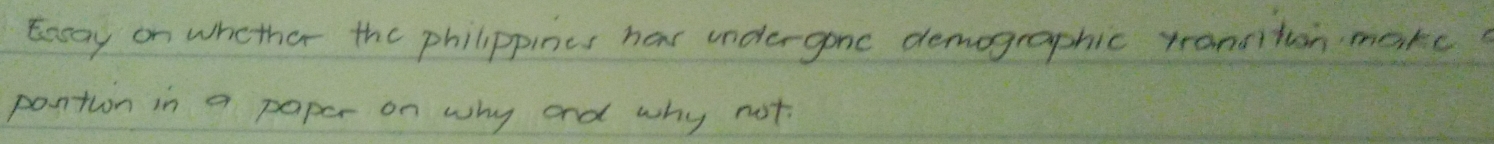 Essay on whether the philippines has undergone demographic transition. make a
position in a paper on why and why not.